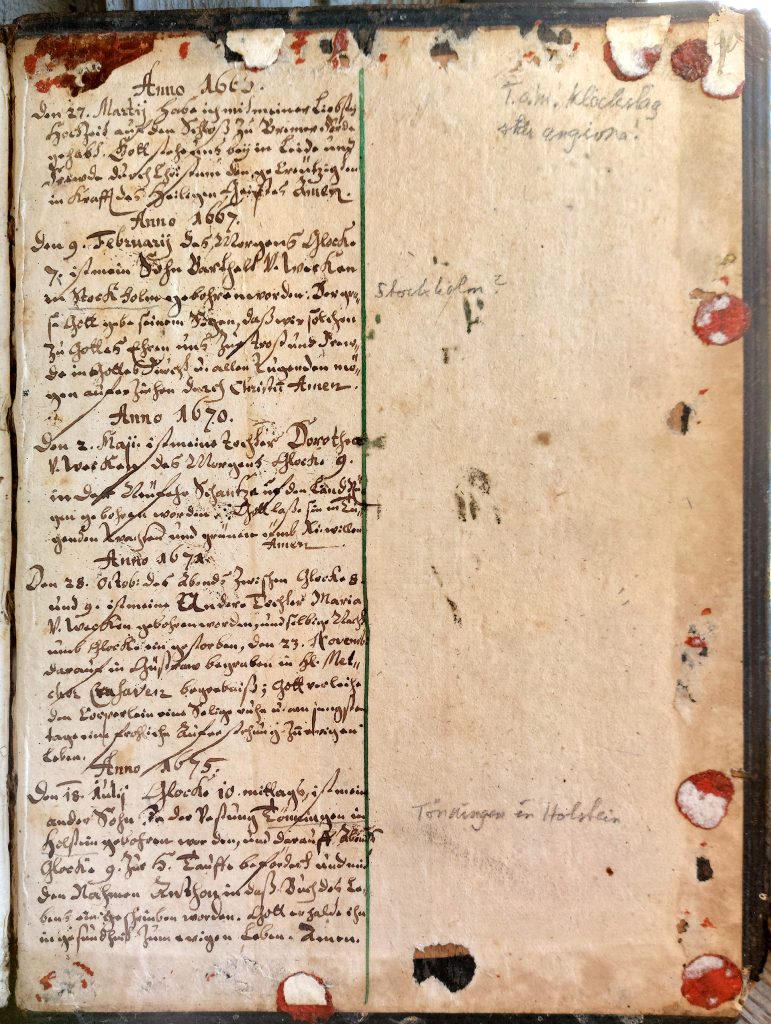 Anno 166
Den 27. Martij habe ich mit meiner Liebsten
Hochzeit auf den Schloß zu Bremer Vörde
gehabt. Gott stehe uns bey in Leide und
Freude durch Christum den gecreutzigten
in Krafft des Heiligen Geistes Amen.
Anno 1667.
Den 9. Februarij des Morgens Glocke
7. ist mein Sohn Barthelt V. Wecken
in Stockholm gebohren worden.
Gott gebe seinen Segen, daß wir solchen
zu Gottes Ehren uns zur Trost und Freu-
de in Gottes Furcht u. allen Tugenden mö-
gen auferziehen durch Christu Amen.
Anno 1670.
Den 2. Maji ist meine Tochter Dorothea
V. Wecken des Morgens Glocke 9.
in der Schantze auf den
gebohren worden. Gott laße sie in Tu-
genden wachsen und grünen umb willen
Amen
Anno 1671.
Den 28. Octob: des Abends zwischen Glocke 8.
und 9. ist meine Andere Tochter Maria
V. Wecken gebohren worden, und selbige Nacht
umb Glocke ein gestorben, den 23. Novemb.
darauf in Güstrow begraben in H. Mel-
chior begrebniß; Gott verleihe
den Cörperlein eine Selige ruhe u. am jüngsten
tage eine fröhliche Aufferstehung zum ewigen
Leben.
Anno 1675.
Den 18. Julij Glocke 10. mittags, ist mein
ander Sohn in der Vestung Tönningen in
Holstein gebohren worden, und darauff Abends
Glocke 9. zur H. Tauffe befordert und mit
den Nahmen Anthon in daß Buch des Le-
bens eingeschrieben worden. Gott erhalte ihn
in gesundheit zum ewigen Leben. Amen.
T.o.m. klockslag
är angivna!
Stockholm?
Tönningen in Holstein